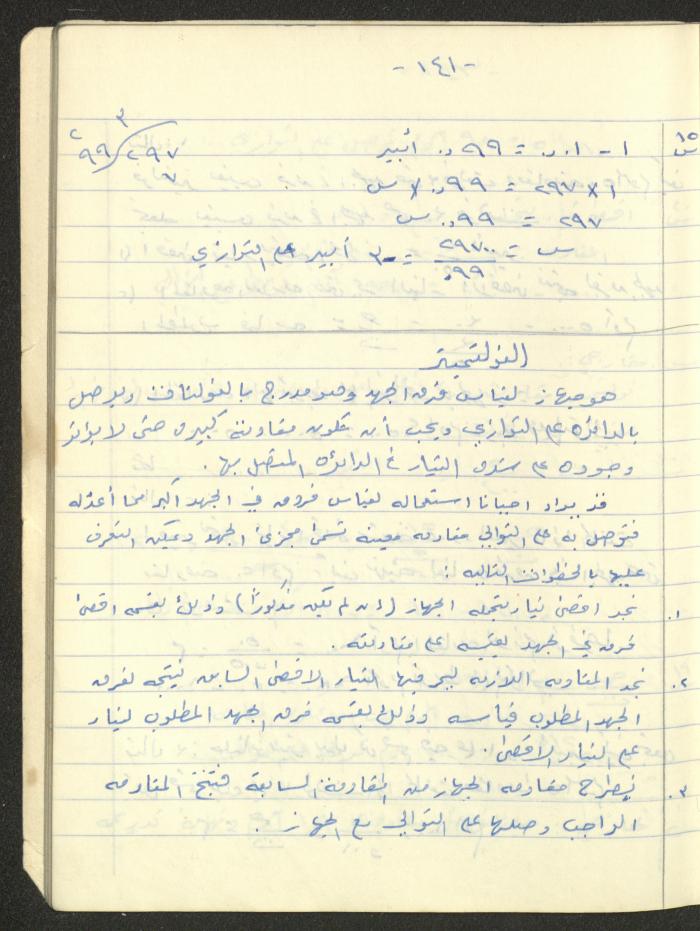 - ١٤١ -
س ١٥
١ - ٠.١ = ٠.٩٩ أمبير
١ × ٢٩٧ = ٠.٩٩ × س
٢٩٧ = ٠.٩٩ س
س = ٢٩٧٠٠ / ٩٩ = ٣٠٠ أمبير على التوازي
٢٩٧ / ٩٩
٣
الفولتميتر
هو جهاز لقياس فرق الجهد وهو مدرج بالفولتات ويوصل
بالدائرة على التوازي ويجب أن تكون مقاومته كبيرة حتى لا يؤثر
وجوده على شدة التيار في الدائرة المتصل بها .
قد يراد احيانا استعماله لقياس فروق في الجهد أكبر مما أعد له
فتوصل به على التوالي مقاومه معينه تسمى مجزئ الجهد ويمكن التعرف
عليها بالخطوات التاليه :
١. نجد اقصى تيار يتحمله الجهاز (إن لم يكن مذكوراً) وذلك بقسمة اقصى
فرق في الجهد يقيسه على مقاومته .
٢. نجد المقاومه اللازمه ليمر فيها التيار الاقصى السابق نتيجه لفرق
الجهد المطلوب قياسه وذلك بقسمة فرق الجهد المطلوب
على التيار الاقصى .
٣. نطرح مقاومه الجهاز من المقاومة السابقة فتنتج المقاومه
الواجب وصلها على التوالي مع الجهاز .